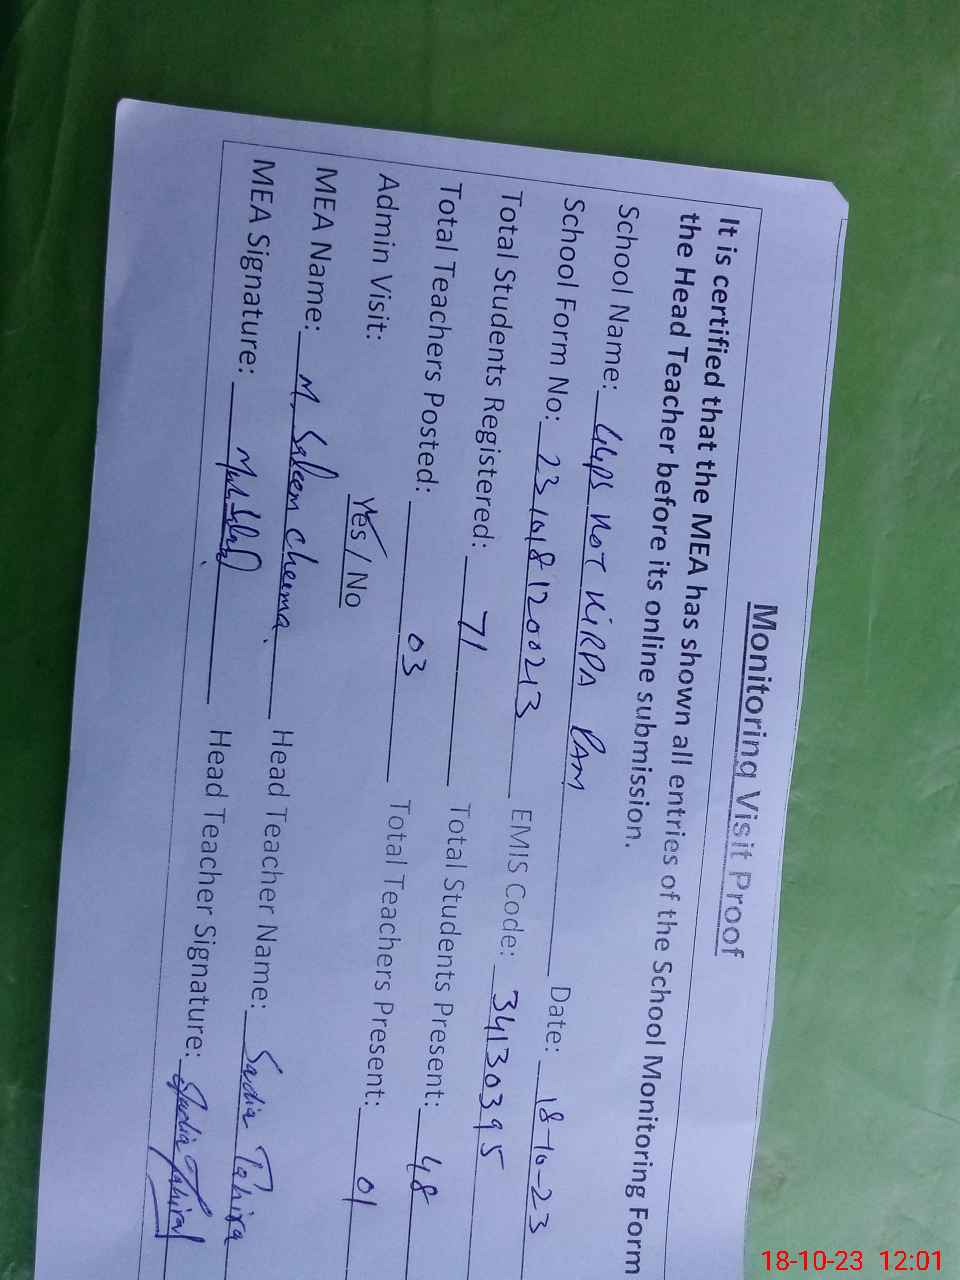 Monitoring Visit Proof
It is certified that the MEA has shown all entries of the School Monitoring Form
the Head Teacher before its online submission.
School Name: GGPS KOT KIRPA RAM Date: 18-10-23
School Form No: 2310181200213 EMIS Code: 34130395
Total Students Registered: 71 Total Students Present: 48
Total Teachers Posted: 03 Total Teachers Present: 01
Admin Visit: Yes / No
MEA Name: M. Saleem Cheema. Head Teacher Name: Sadia Tahira
MEA Signature: Head Teacher Signature: Sadia Tahira
18-10-23 12:01